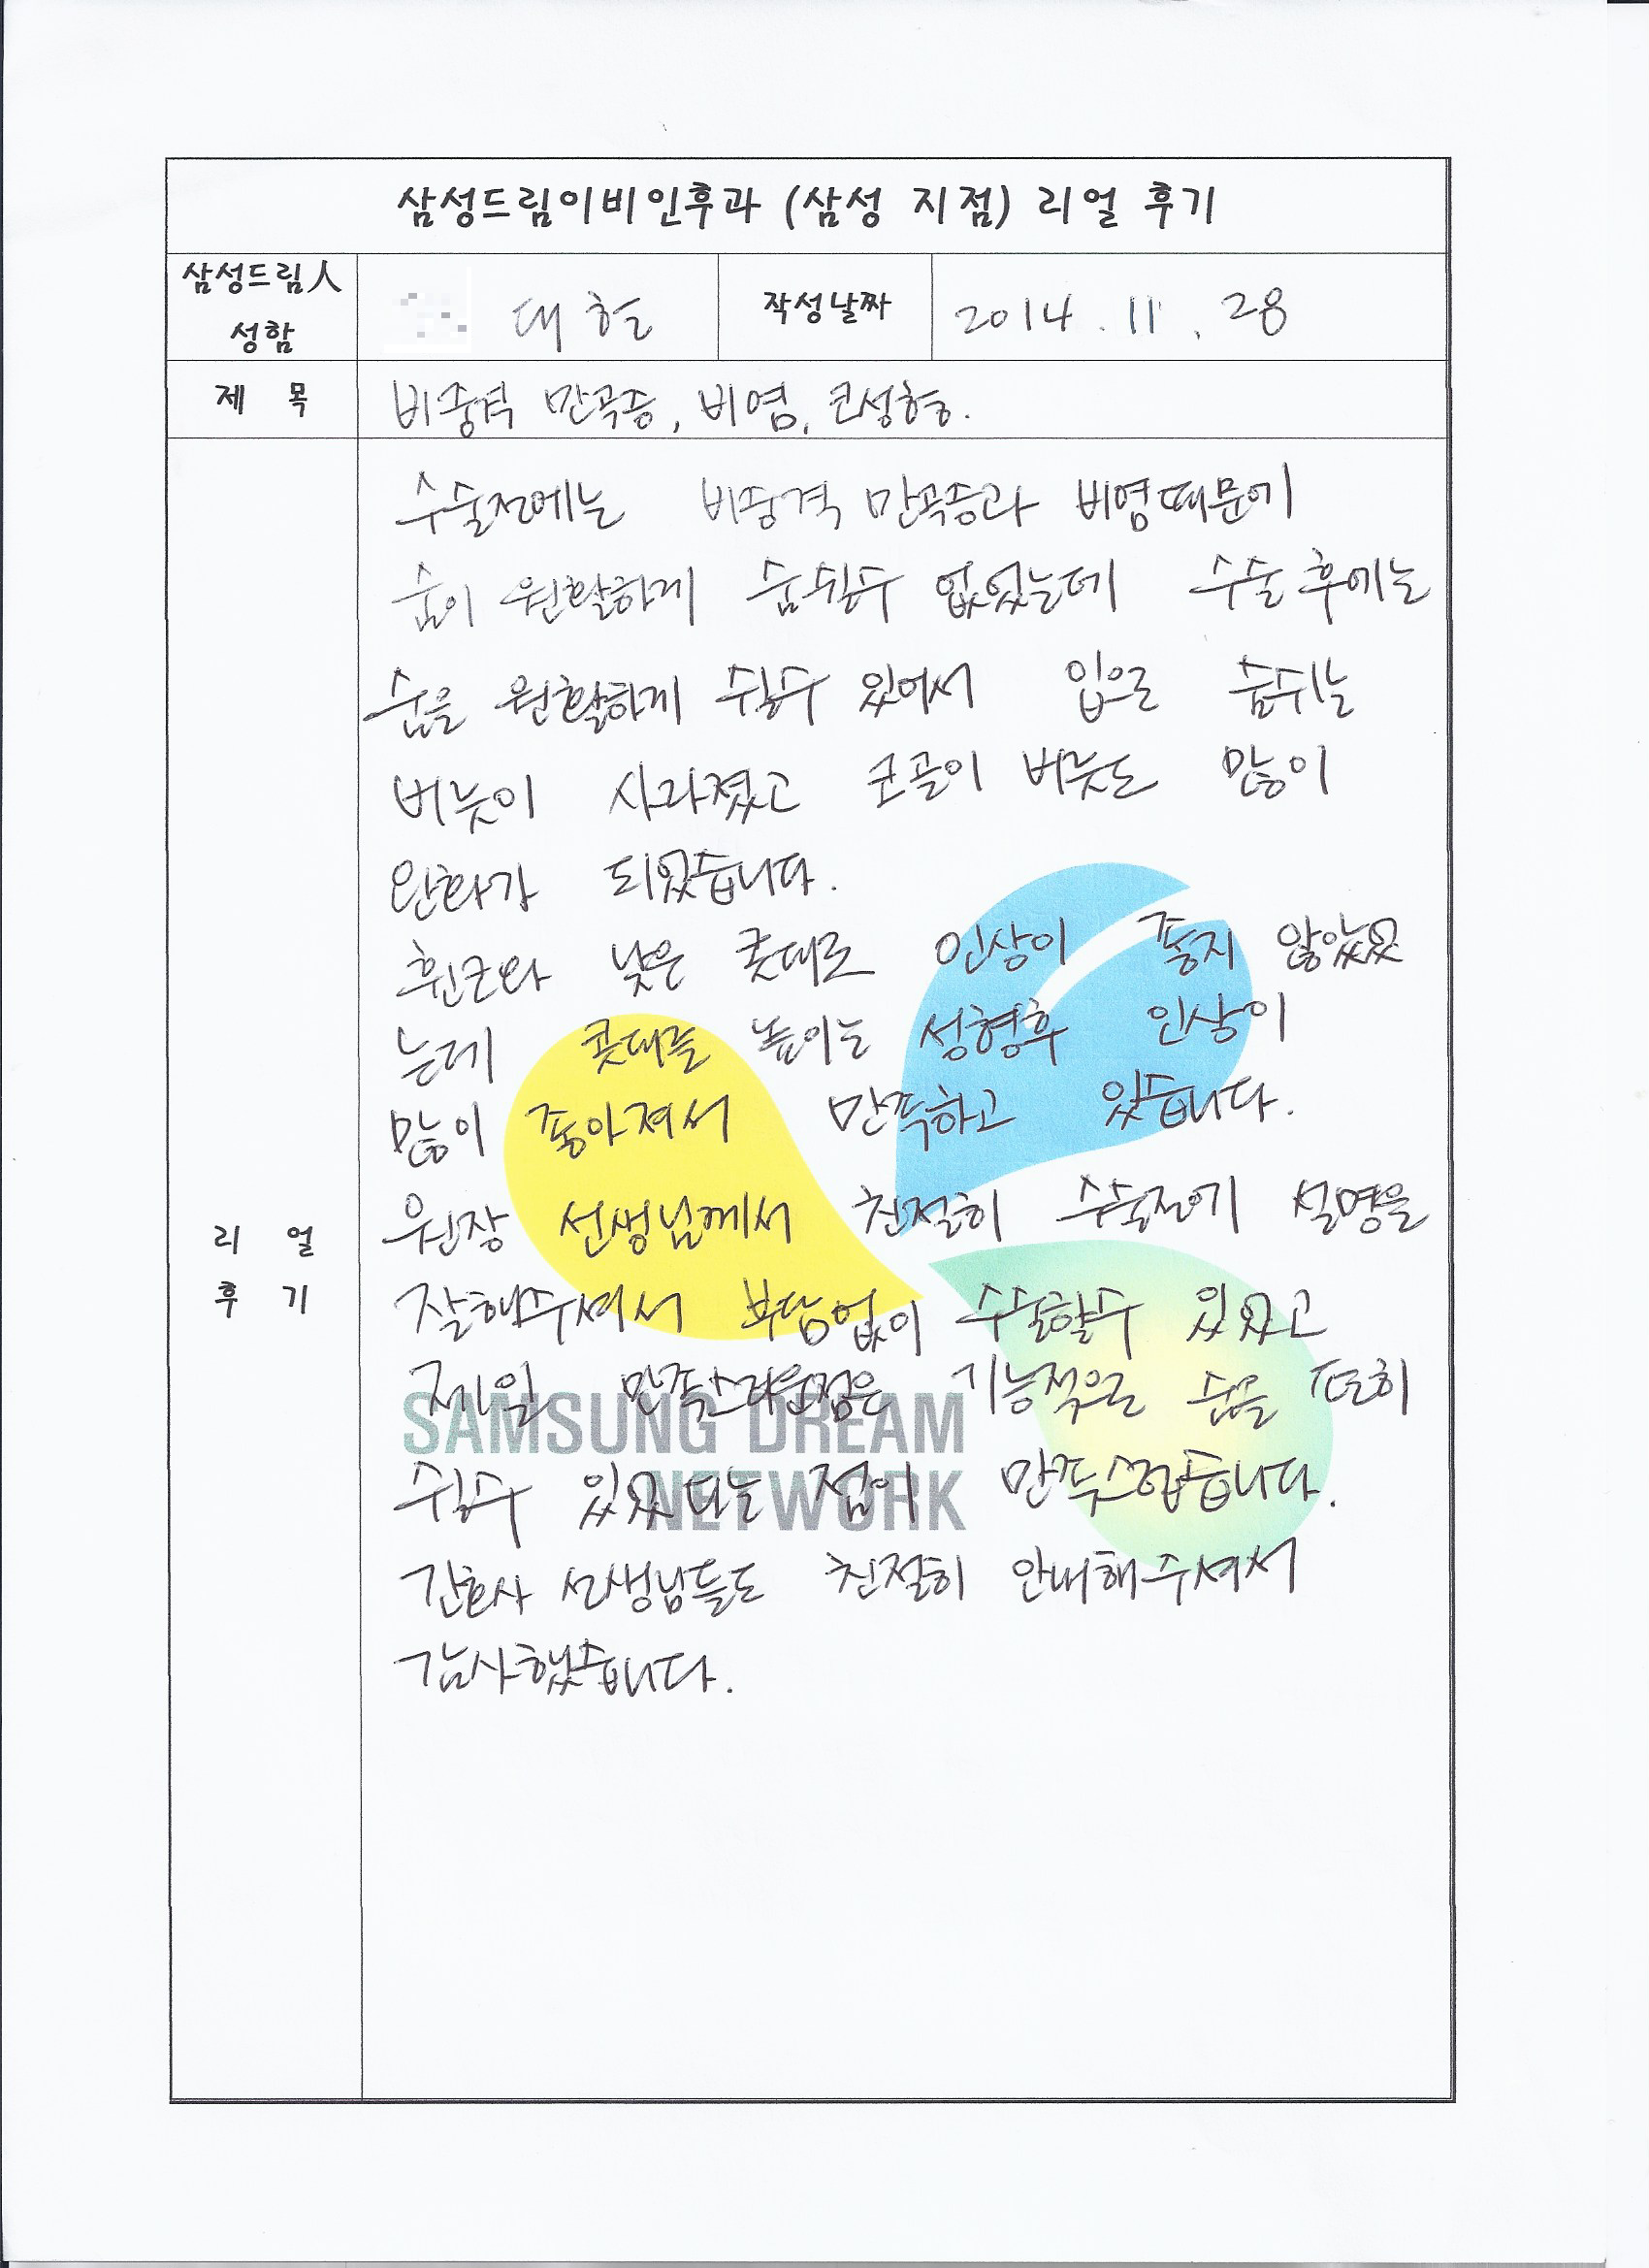 삼성드림이비인후과 (삼성 지점) 리얼 후기
삼성드림人 성함 대헌 작성날짜 2014.11.28
제 목 비중격 만곡증, 비염, 코성형.
수술전에는 비중격 만곡증과 비염때문에
숨이 원활하게 숨쉴수 없었는데 수술후에는
숨을 원활하게 쉴수 있어서 입으로 숨쉬는
버릇이 사라졌고 코골이 버릇도 많이
완화가 되었습니다.
휜코와 낮은 콧대로 인상이 좋지 않았었
는데 콧대를 높이는 성형후 인상이
많이 좋아져서 만족하고 있습니다.
원장 선생님께서 친절히 수술전기 설명을
잘해주셔서 부담없이 수술할수 있었고
제일 만족스러운점은 기능적으로 숨을 편히
쉴수 있었다는 점이 만족스럽습니다.
간호사 선생님들도 친절히 안내해주셔서
감사했습니다.
리 얼
후 기
SAMSUNG DREAM
NETWORK